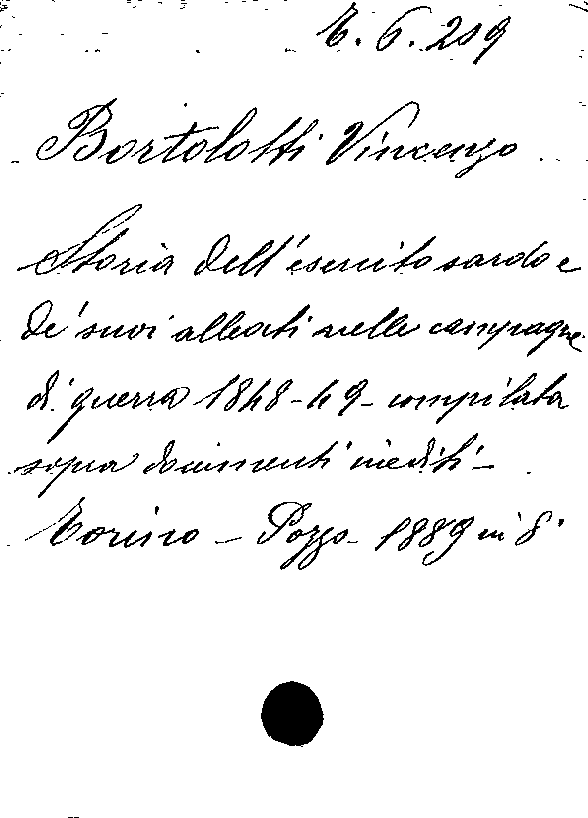 E. 6. 219
Bortolotti Vincenzo
Storia dell'esercito sardo e
de' suoi alleati nelle campagne
di guerra 1848-49 - compilata
sopra documenti inediti -
Torino - Pozzo - 1889 in 8°